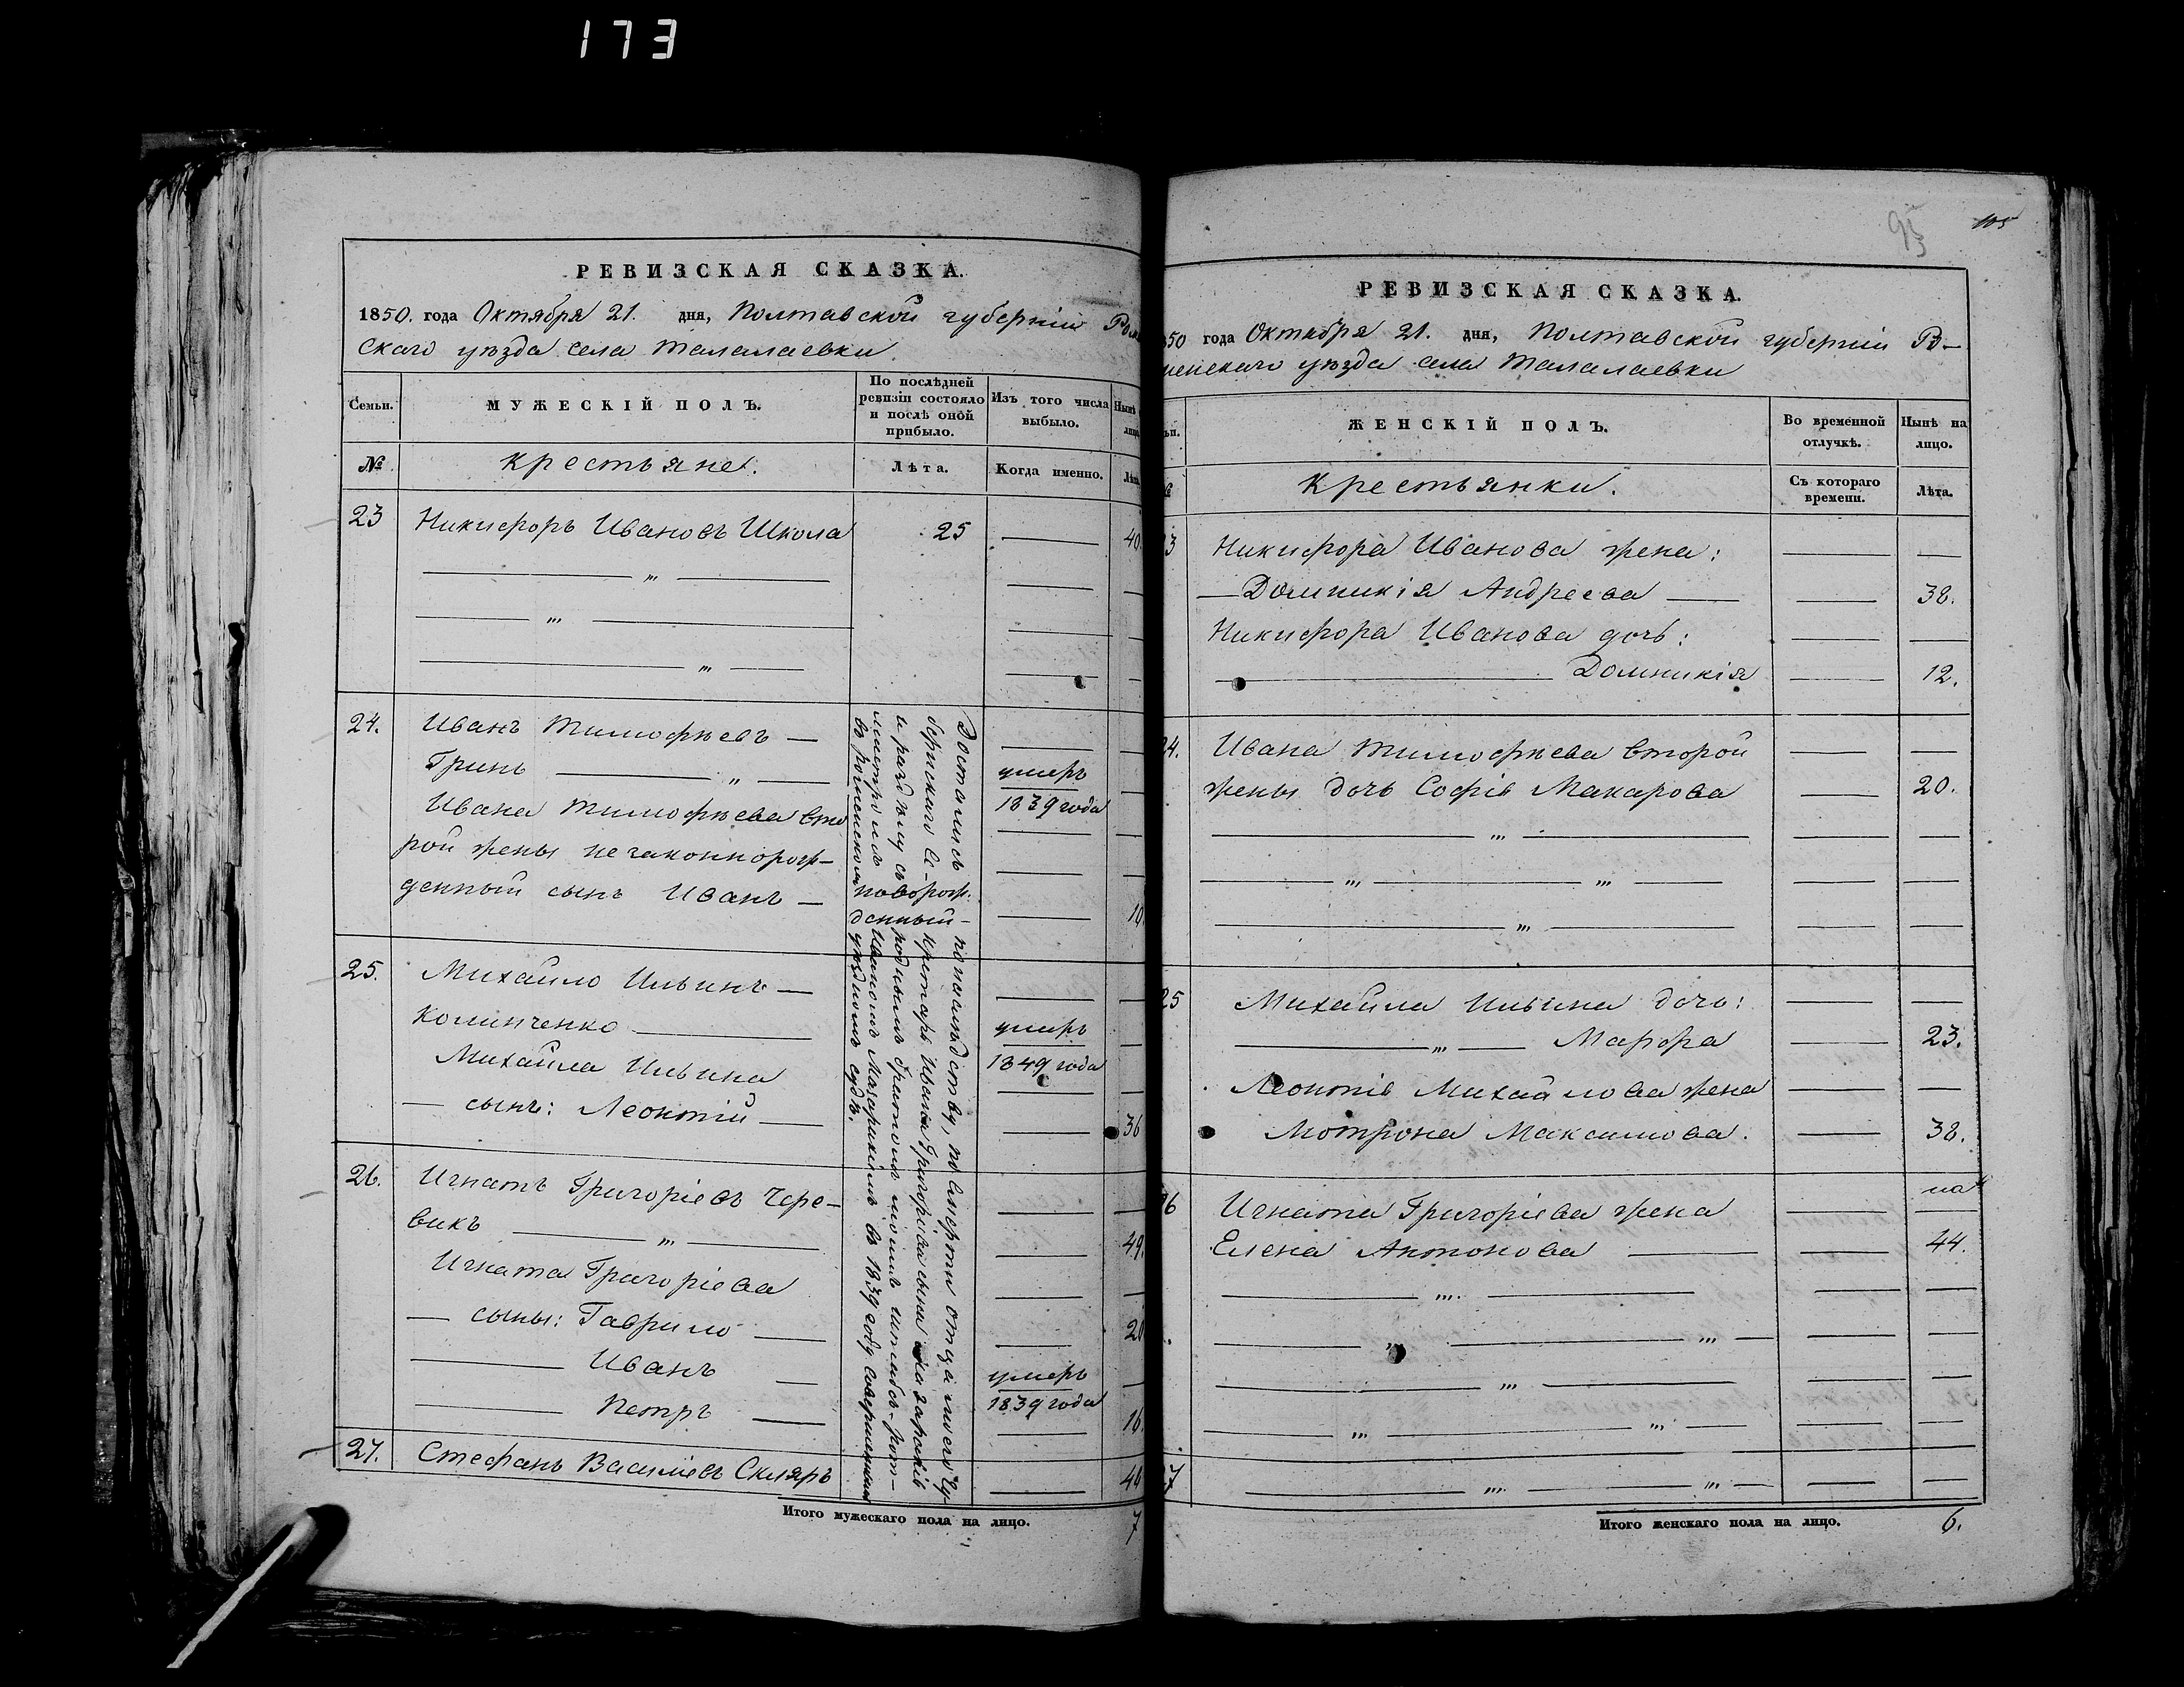 173
РЕВИЗСКАЯ СКАЗКА.
1850. года Октября 21. дня, Полтавской губерніи Ром
скаго уѣзда села Талалаевки.
Семьи.
МУЖЕСКІЙ ПОЛЪ.
По послѣдней
ревизіи состояло
и послѣ оной
прибыло.
Изъ того числа
выбыло.
Нынѣ
лицо
№
Крестьяне.
Лѣта.
Когда именно.
Лѣта
23 Никифоръ Ивановъ Школа 25 — 40
24. Иванъ Тимофѣевъ —
Гринь — „ — умеръ
1839 года
Ивана Тимофѣева вто
рой жены незаконнорож-
денный сынъ Иванъ — новорож-
денный — 10
25. Михайло Ильинъ —
Коминченко — умеръ
1849 года
Михайла Ильина
— сынъ: Леонтій — 36
26. Игнатъ Григоріевъ Чере-
викъ — „ — 49.
Игната Григоріева
— сыны: Гаврило — 20
— Иванъ — умеръ
1839 года
— Петръ — 16
27. Стефанъ Василіевъ Скляръ — 44
Достались по наслѣдству, по смерти отца моего Гу-
бернскаго Секретаря Ивана Григоріева сына
и раздѣлу съ роднымъ братомъ моимъ штабсъ-рот-
мистромъ Иваномъ въ 1839 году совершенному
въ роменскомъ уѣздномъ судѣ.
Итого мужескаго пола на лицо. 7
95
105
РЕВИЗСКАЯ СКАЗКА.
850 года Октября 21. дня, Полтавской губерніи Ро-
менскаго уѣзда села Талалаевки
ьи.
ЖЕНСКІЙ ПОЛЪ.
Во временной
отлучкѣ.
Нынѣ на
лицо.
Крестьянки.
Съ котораго
времени.
Лѣта.
3 Никифора Иванова жена: — —
— Домникія Андреева — — 38.
Никифора Иванова дочь: — —
— Домникія — 12.
24. Ивана Тимофѣева второй — —
жены дочь Софія Макарова — 20.
25 Михайла Ильина дочь: — —
— „ — Марфа — 23.
Леонтія Михайлова жена — —
Мотрона Максимова. — 38.
26 Игната Григоріева жена — —
Елена Антонова — — 44.
27
Итого женскаго пола на лицо. 6.